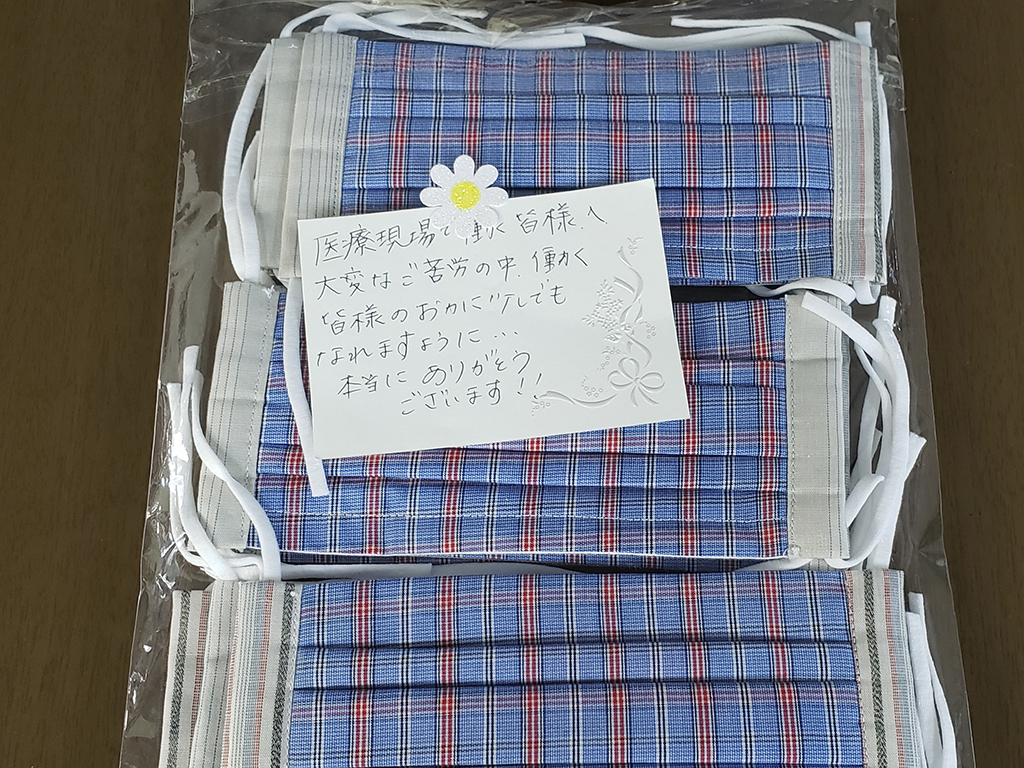 医療現場で働く皆様へ
大変なご苦労の中、働く
皆様のお力に少しでも
なれますように…
本当に ありがとう
ございます!!